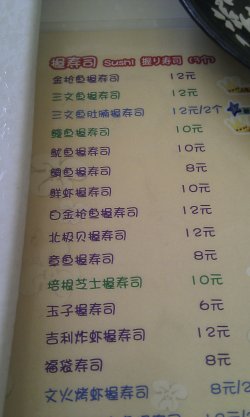 握寿司 Sushi 握り寿司 (1个)
金枪鱼握寿司 12元
三文鱼握寿司 12元
三文鱼肚腩握寿司 12元/2个
鳗鱼握寿司 10元
鱿鱼握寿司 10元
鲷鱼握寿司 8元
鲜虾握寿司 10元
白金枪鱼握寿司 12元
北极贝握寿司 12元
章鱼握寿司 8元
培根芝士握寿司 10元
玉子握寿司 6元
吉利炸虾握寿司 12元
福袋寿司 8元
文火烤虾握寿司 8元/2